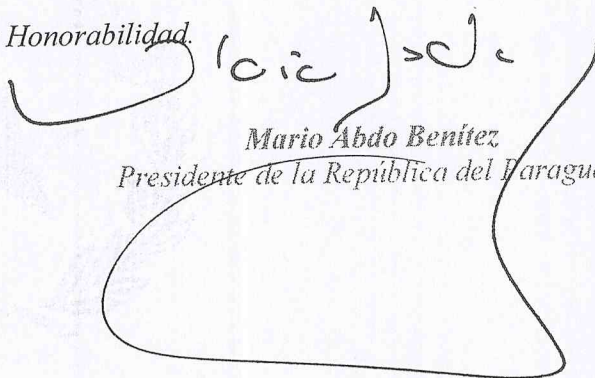 Honorabilidad.
Mario Abdo Benítez
Presidente de la República del Paragu